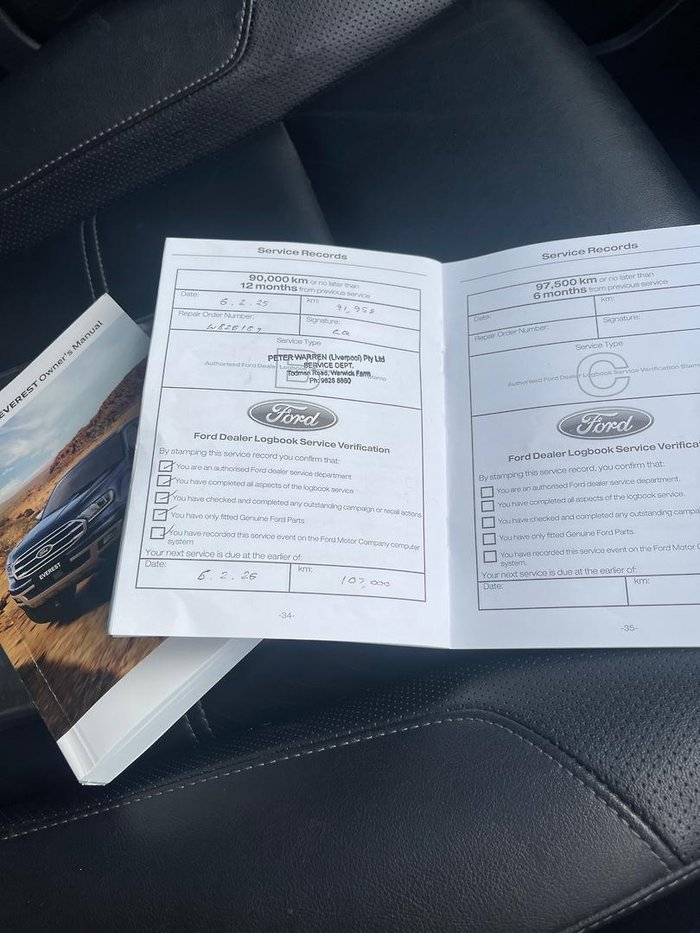 EVEREST Owner's Manual
EVEREST
Service Records
90,000 km or no later than
12 months from previous service
Date: 6.2.25 km: 91,958
Repair Order Number: Signature:
Service Type
Authorised Ford Dealer Logbook
B
PETER WARREN (Liverpool) Pty Ltd
SERVICE DEPT.
Todman Road, Warwick Farm
Ph: 9828 8860
Ford
Ford Dealer Logbook Service Verification
By stamping this service record you confirm that:
You are an authorised Ford dealer service department
You have completed all aspects of the logbook service
You have checked and completed any outstanding campaign or recall actions
You have only fitted Genuine Ford Parts
You have recorded this service event on the Ford Motor Company computer
system
Your next service is due at the earlier of:
Date: 6.2.26 km: 107,000
-34-
Service Records
97,500 km or no later than
6 months from previous service
Date: km:
Repair Order Number: Signature:
Service Type
C
Authorised Ford Dealer Logbook Service Verification Stamp
Ford
Ford Dealer Logbook Service Verificat
By stamping this service record, you confirm that:
You are an authorised Ford dealer service department.
You have completed all aspects of the logbook service.
You have checked and completed any outstanding campa
You have only fitted Genuine Ford Parts.
You have recorded this service event on the Ford Motor C
system.
Your next service is due at the earlier of:
Date: km:
-35-